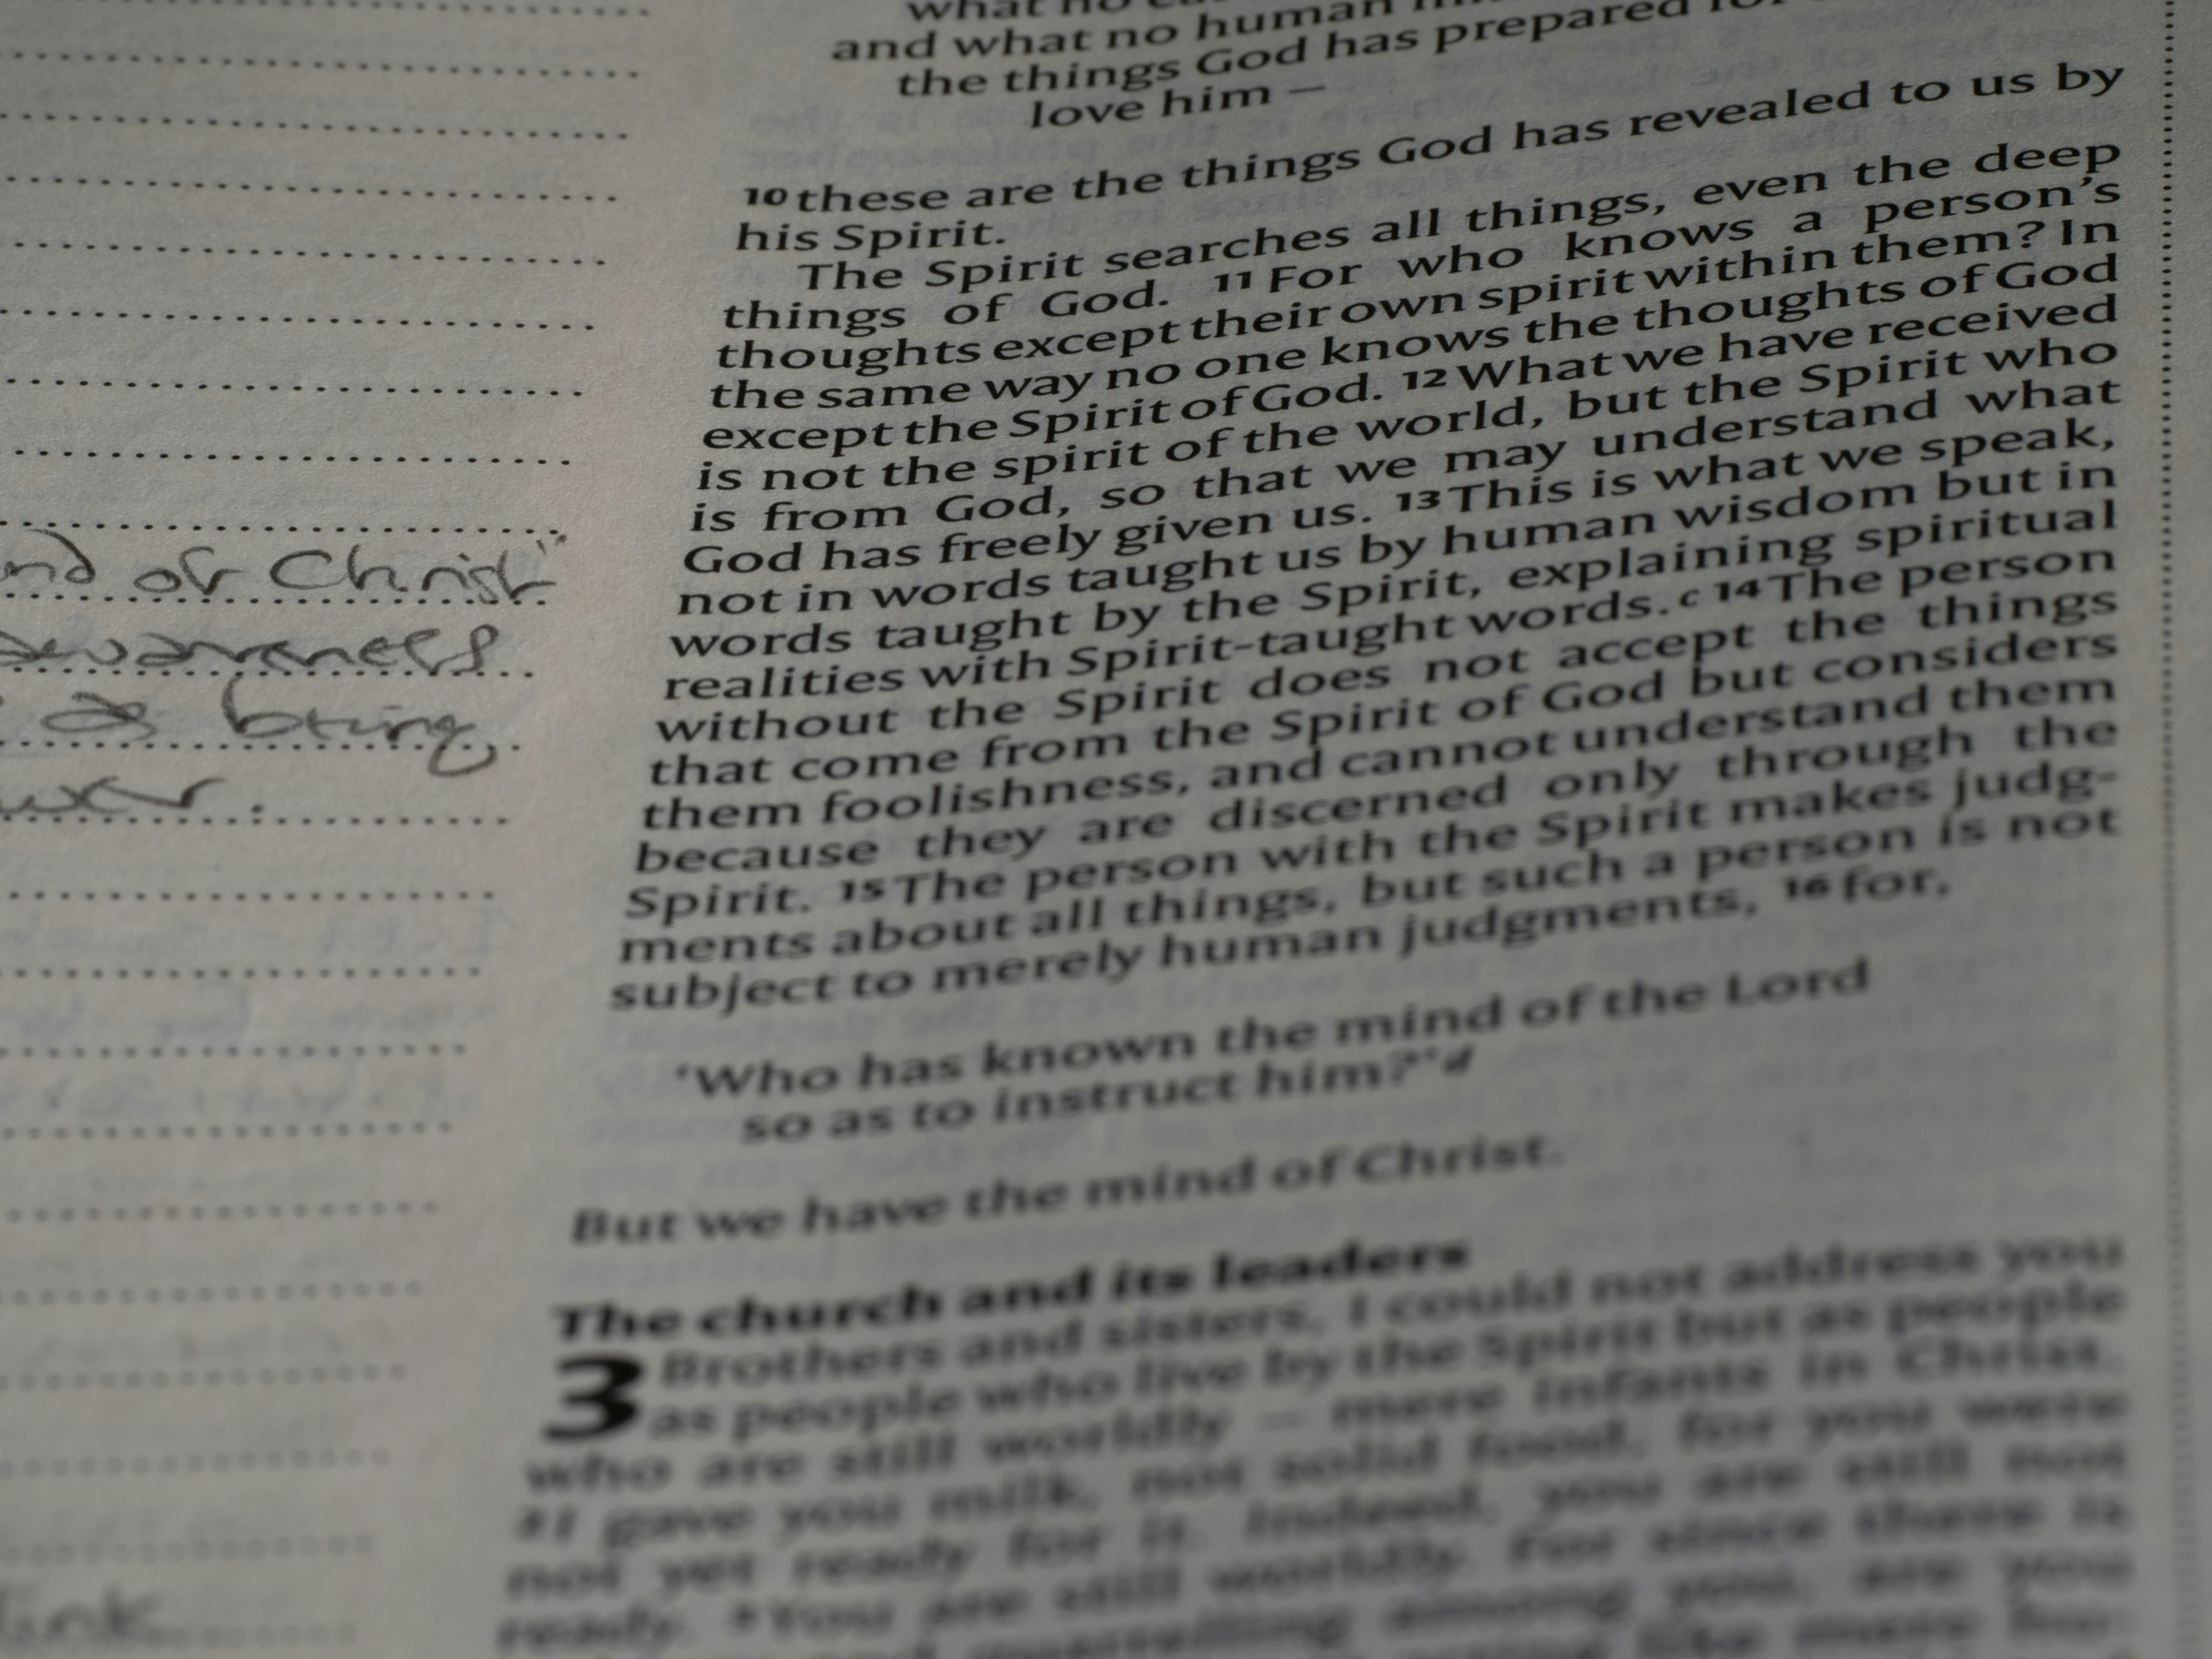 and what no human
the things God has prepared
love him —
10 these are the things God has revealed to us by
his Spirit.
The Spirit searches all things, even the deep
things of God. 11 For who knows a person's
thoughts except their own spirit within them? In
the same way no one knows the thoughts of God
except the Spirit of God. 12 What we have received
is not the spirit of the world, but the Spirit who
is from God, so that we may understand what
God has freely given us. 13 This is what we speak,
not in words taught us by human wisdom but in
words taught by the Spirit, explaining spiritual
realities with Spirit-taught words.c 14 The person
without the Spirit does not accept the things
that come from the Spirit of God but considers
them foolishness, and cannot understand them
because they are discerned only through the
Spirit. 15 The person with the Spirit makes judg-
ments about all things, but such a person is not
subject to merely human judgments, 16 for,
'Who has known the mind of the Lord
so as to instruct him?'d
But we have the mind of Christ.
The church and its leaders
3 Brothers and sisters, I could not address you
as people who live by the Spirit but as people
who are still worldly – mere infants in Christ.
2 I gave you milk, not solid food, for you were
not yet ready for it. Indeed, you are still not
ready. 3 You are still worldly. For since there is
quarrelling among you, are you
of Christ"
awareness
being